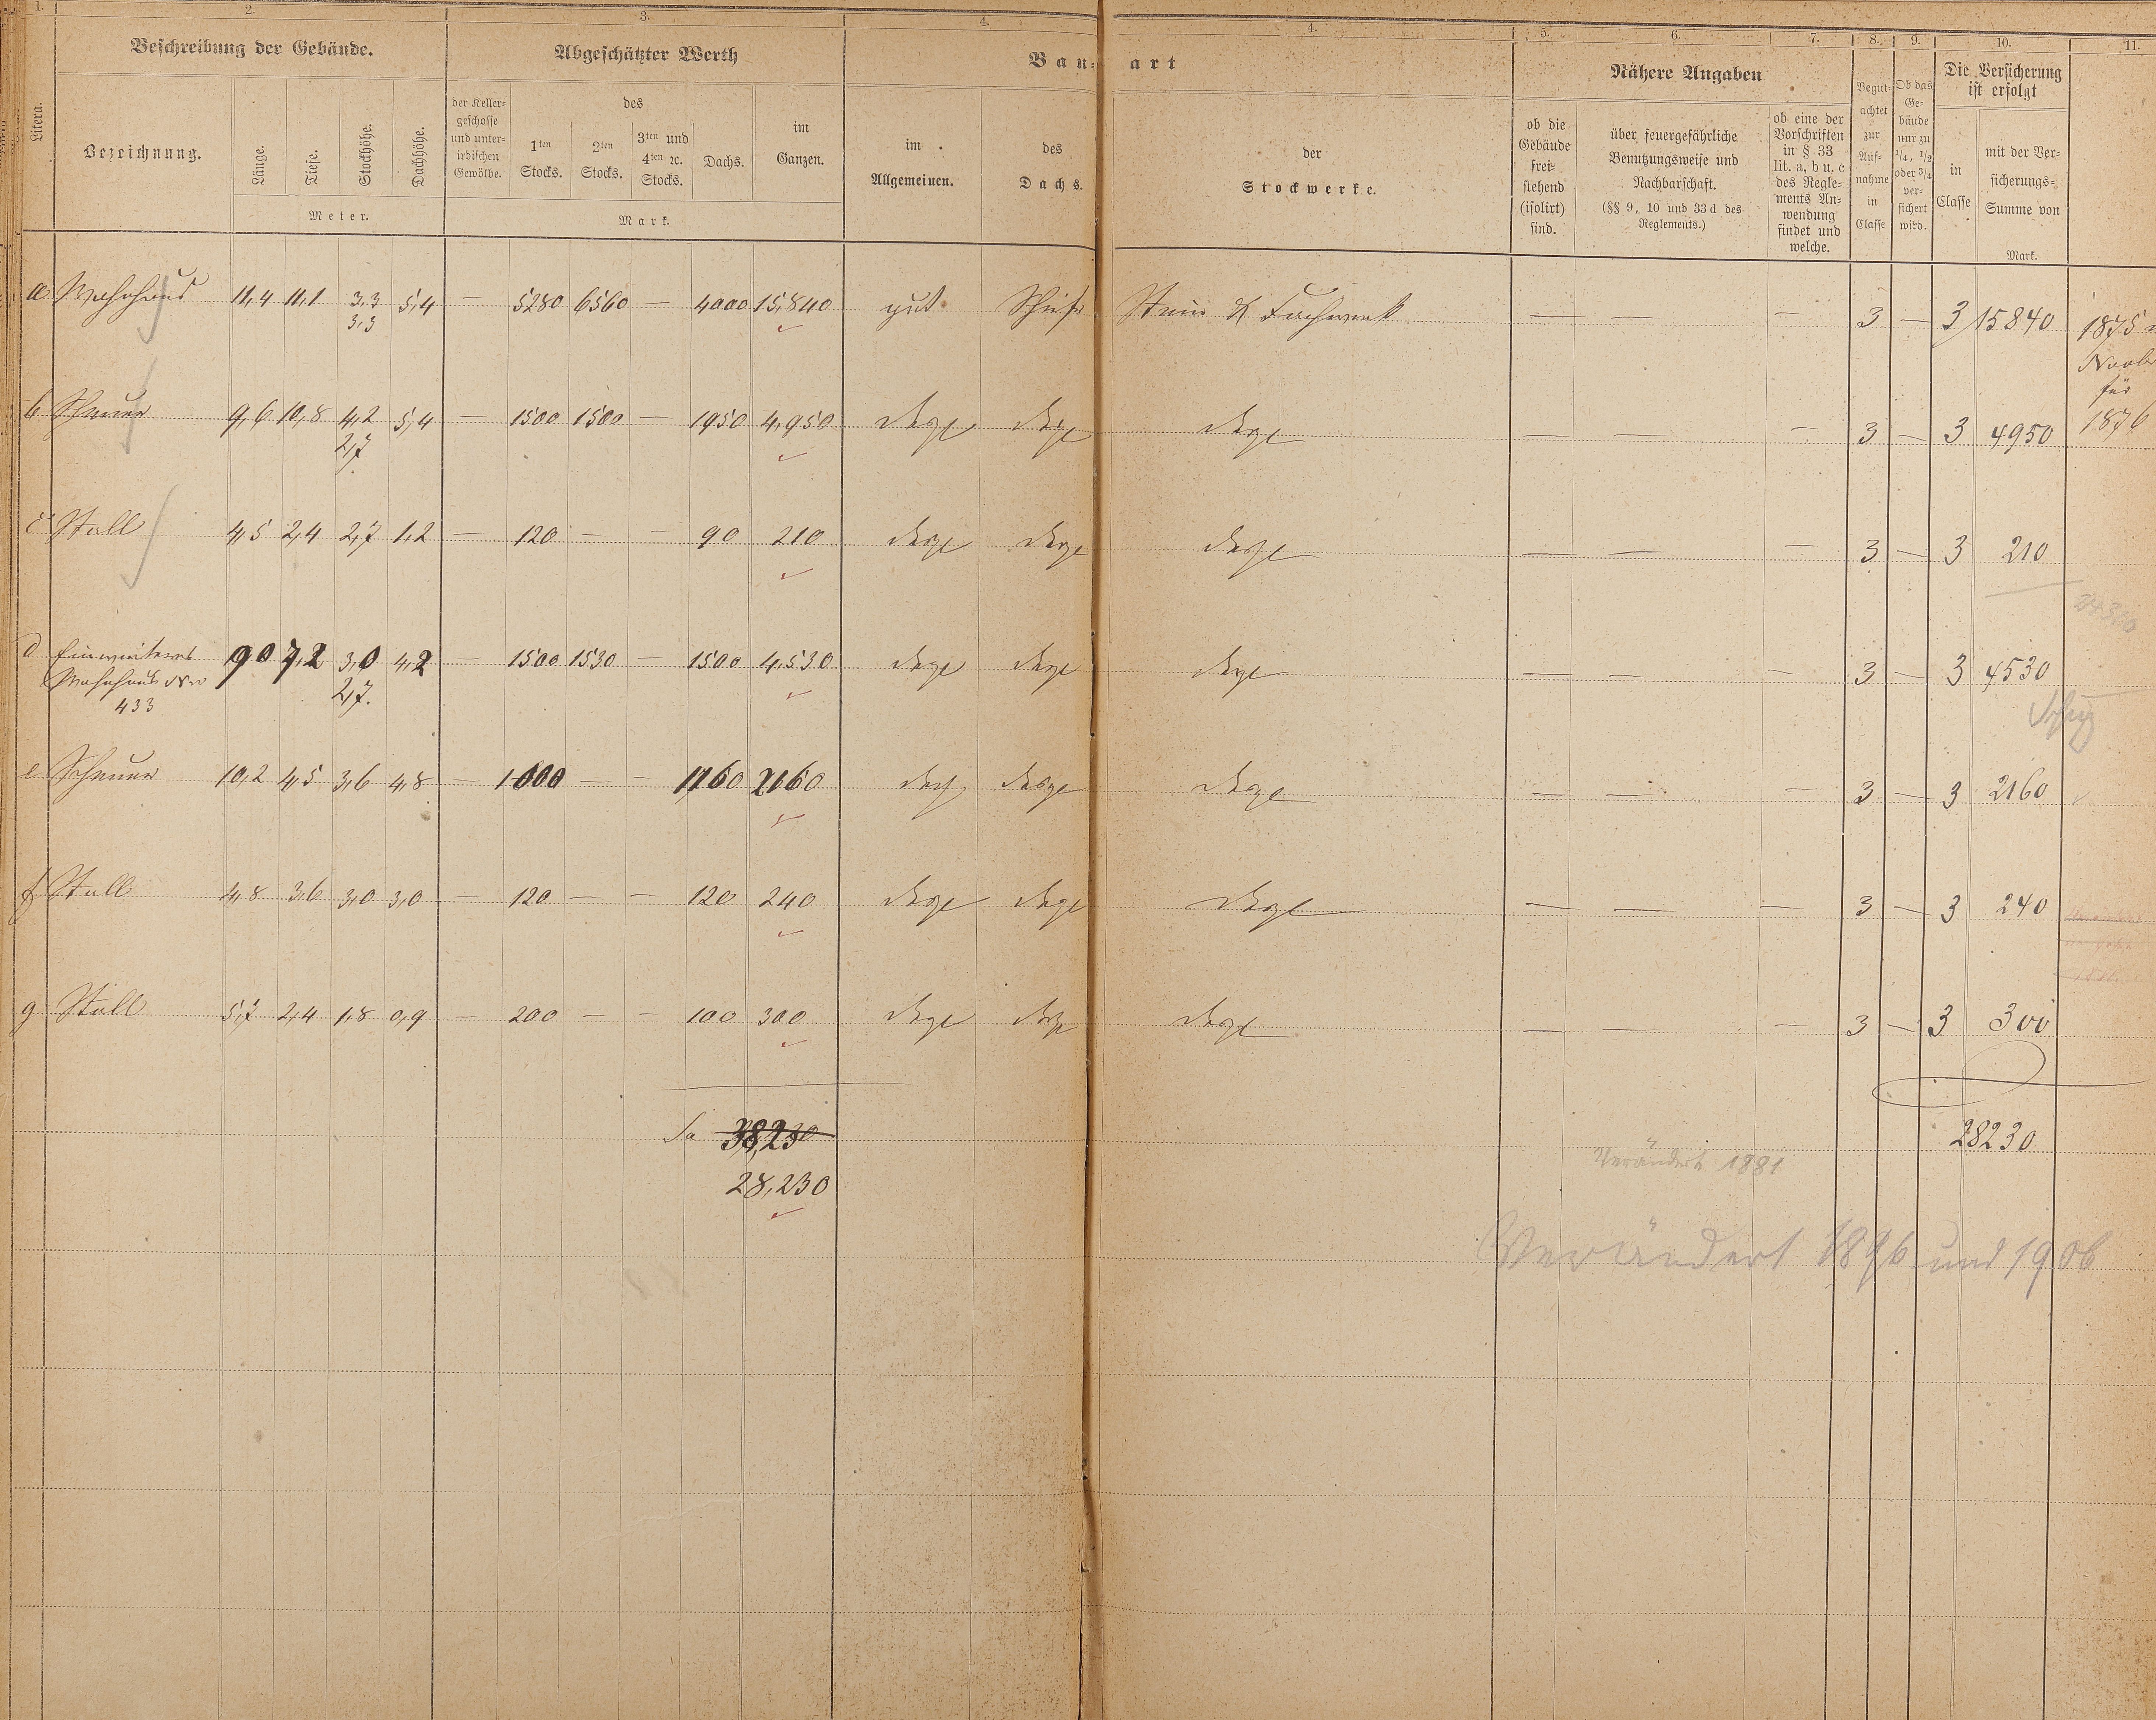 1. 2. 3. 4. 4. 5. 6. 7. 8. 9. 10. 11.
Litera.
Beschreibung der Gebäude.
Bezeichnung.
Länge. Tiefe. Stockhöhe. Dachhöhe.
Meter.
Abgeschätzter Werth
der Keller-
geschosse
und unter-
irdischen
Gewölbe.
des
1ten
Stocks.
2ten
Stocks.
3ten und
4ten ꝛc.
Stocks.
Dachs.
im
Ganzen.
Mark.
Bau-art
im
Allgemeinen.
des
Dachs.
der
Stockwerke.
Nähere Angaben
ob die
Gebäude
frei-
stehend
(isolirt)
sind.
über feuergefährliche
Benutzungsweise und
Nachbarschaft.
(§§ 9, 10 und 33 d des
Reglements.)
ob eine der
Vorschriften
in § 33
lit. a, b u. c
des Regle-
ments An-
wendung
findet und
welche.
Begut-
achtet
zur
Auf-
nahme
in
Classe
Ob das
Ge-
bäude
nur zu
1/4, 1/2
oder 3/4
ver-
sichert
wird.
Die Versicherung
ist erfolgt
in
Classe
mit der Ver-
sicherungs-
Summe von
Mark.
a Wohnhaus 11,4 11,1 3,3 5,4 — 5280 6560 — 4000 15,840 gut Schiefer Stein & Fachwerk — — — 3 — 3 15840
3,3
1875
für
1876
b Scheuer 9,6 10,8 4,2 5,4 — 1500 1500 — 1950 4,950 dsgl dsgl dsgl — — — 3 — 3 4950
2,7
c Stall 4,5 2,4 2,7 1,2 — 120 — — 90 210 dsgl dsgl dsgl — — — 3 — 3 210
d Ein weiteres 9 0 7,2 3,0 4,2 — 1500 1530 — 1500 4,530 dsgl dsgl dsgl — — — 3 — 3 4530
Wohnhaus No 2,7.
433
e Scheuer 10,2 4,5 3,6 4,8 — 1000 — — 1160 2160 dsgl dsgl dsgl — — — 3 — 3 2160
f Stall 4,8 3,6 3,0 3,0 — 120 — — 120 240 dsgl dsgl dsgl — — — 3 — 3 240
g Stall 5,7 2,4 1,8 0,9 — 200 — — 100 300 dsgl dsgl dsgl — — — 3 — 3 300
Sa 38,230
28230
28,230
Verändert 1881
Verändert 1896 und 1906